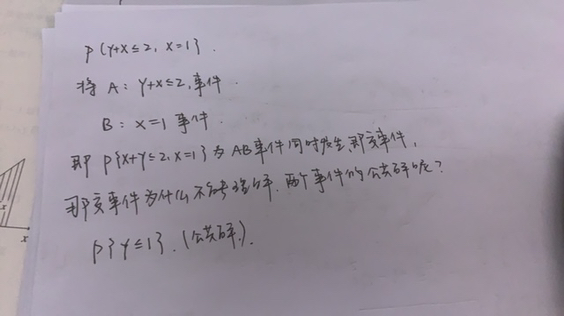 P{Y+X≤2, X=1}.
将 A: Y+X≤2,事件.
B: X=1 事件.
即 P{X+Y≤2,X=1}为AB事件同时发生,那该事件,
那该事件为什么不等于 两个事件的公共解呢?
P{Y≤1}.(公共解).
x